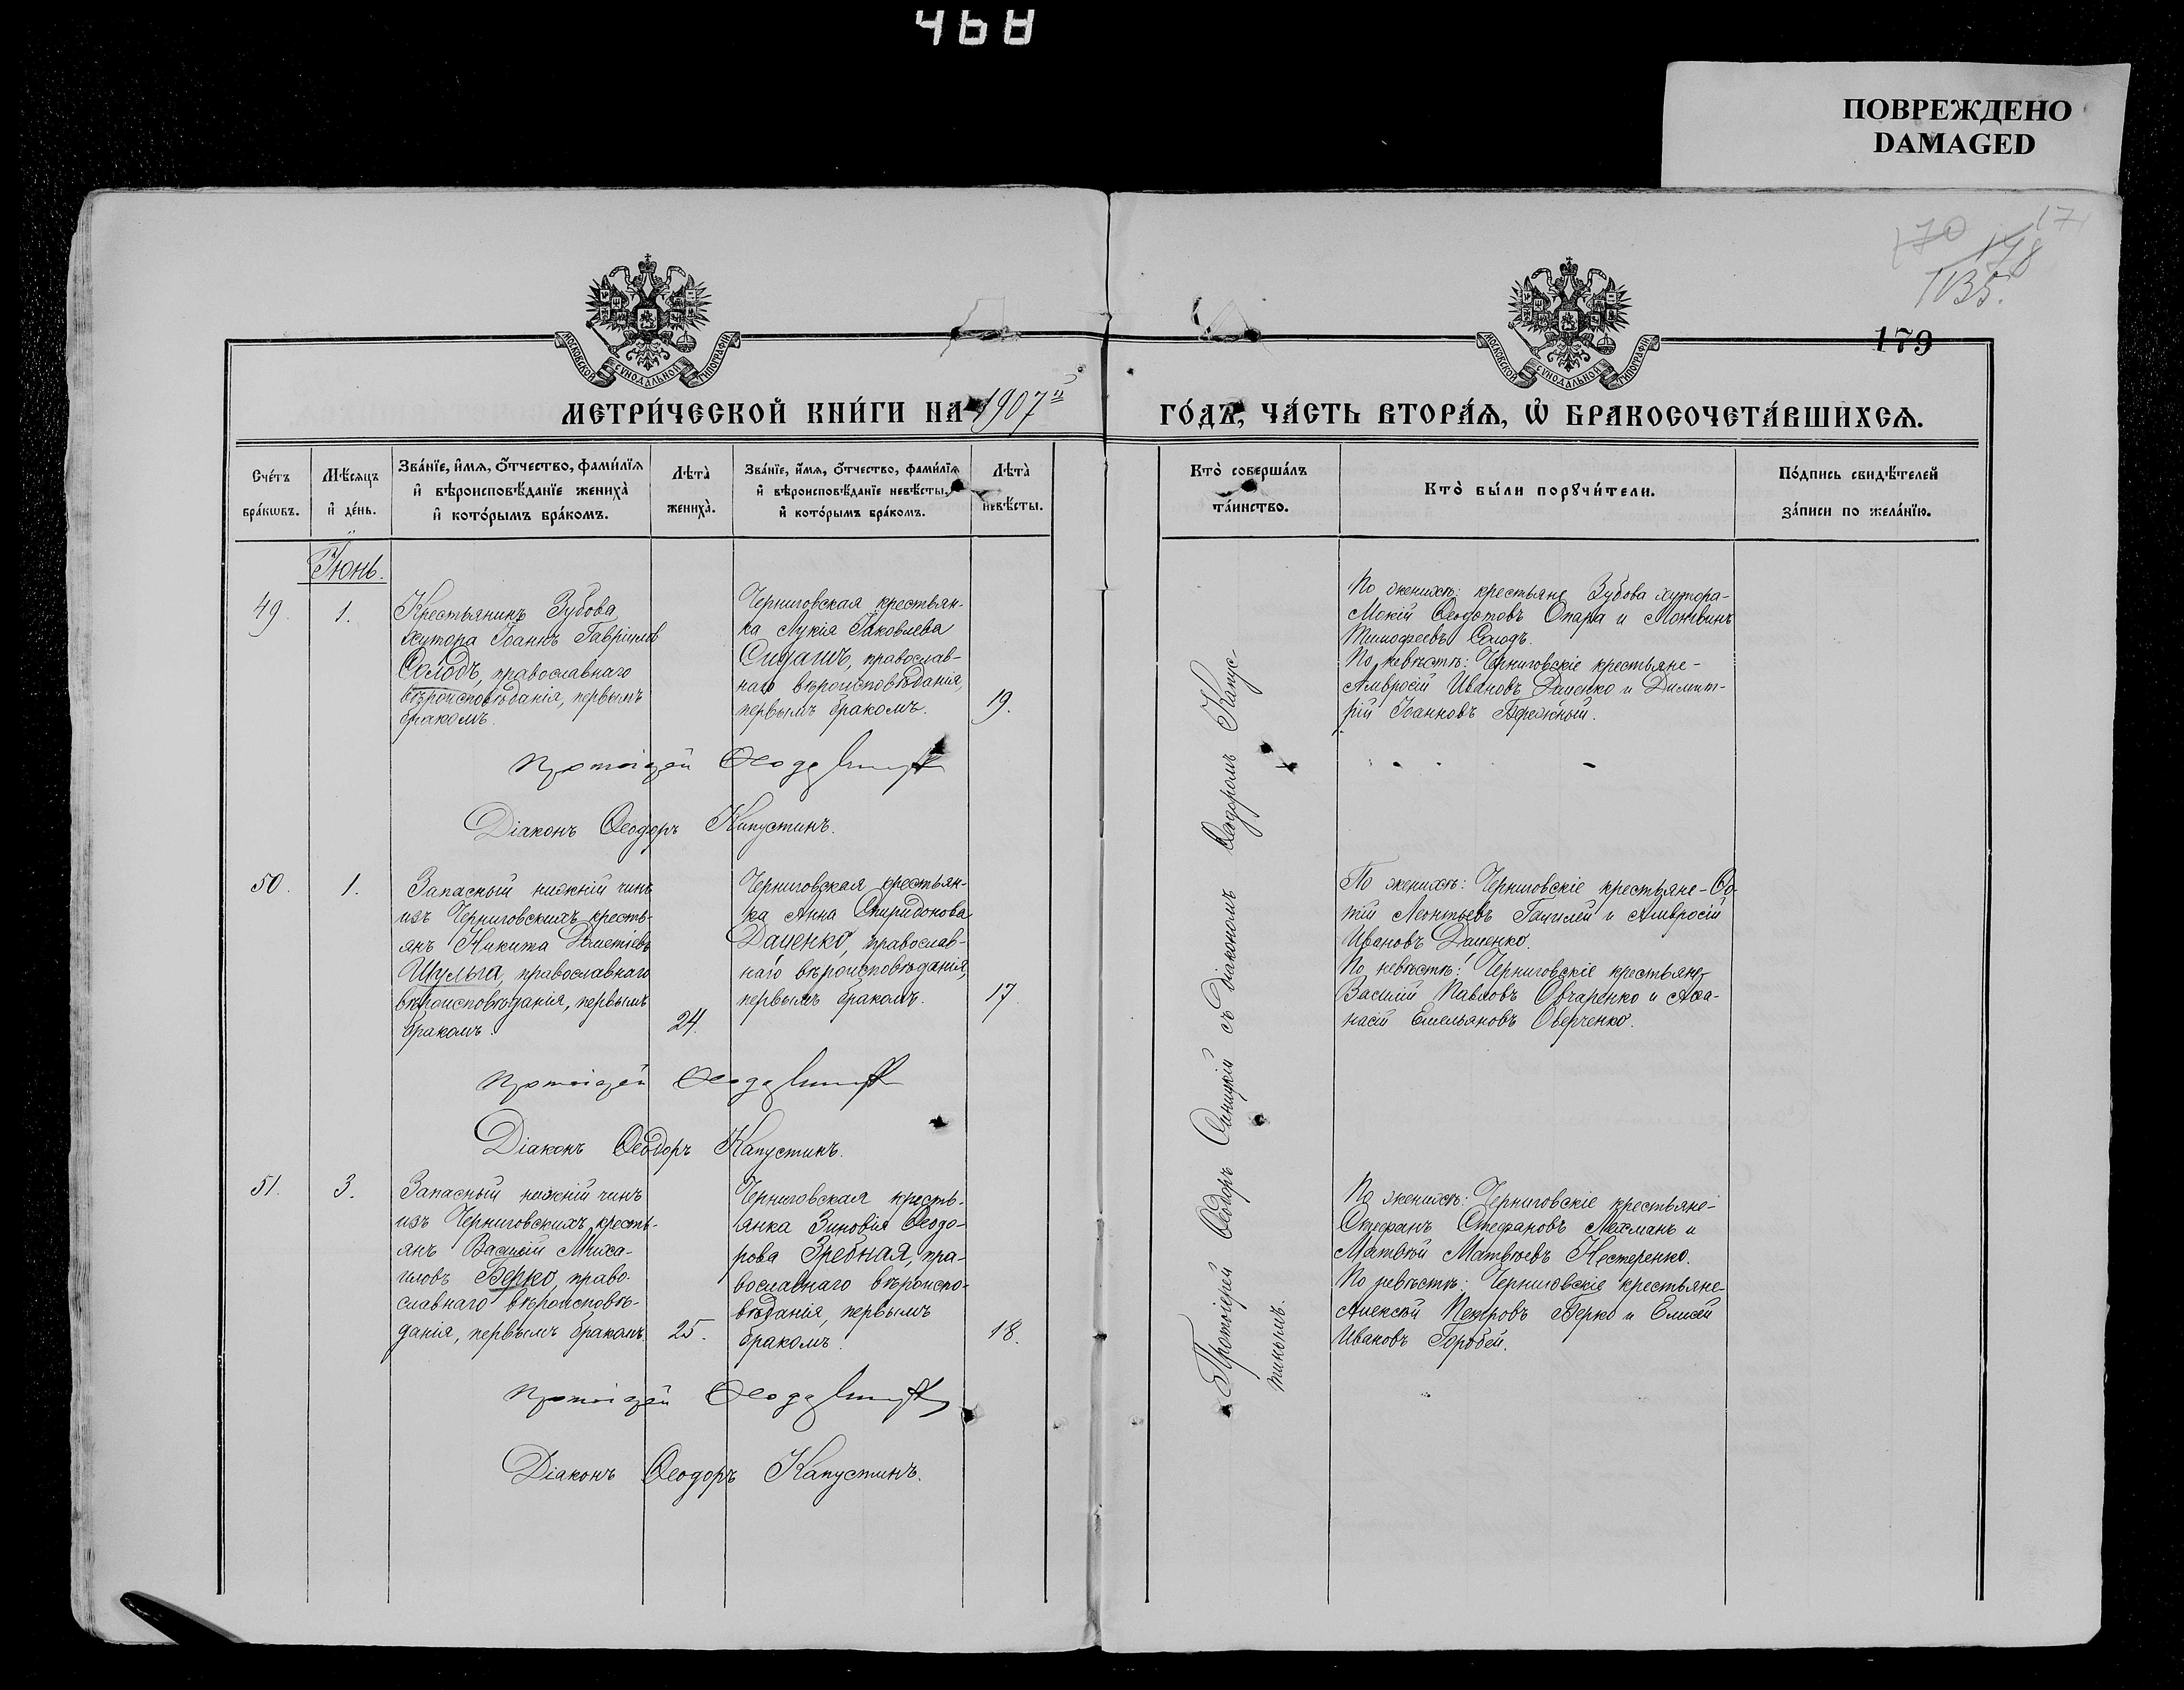 468
ПОВРЕЖДЕНО
DAMAGED
170
17
178
135.
179
МОСКОВСКОЙ СУНОДАЛЬНОЙ ТИПОГРАФІИ
МОСКОВСКОЙ СУНОДАЛЬНОЙ ТИПОГРАФІИ
МЕТРИ́ЧЕСКОЙ КНИ́ГИ НА 1907й
ГО́ДЪ, ЧА́СТЬ ВТОРА́Ѧ, Ѿ БРАКОСОЧЕТА́ВШИХСѦ.
Сче́тъ
бра́кѡвъ.
Мѣ́сяцъ
и҆ де́нь.
Зва́нїе, и҆́мѧ, ѻ҆́тчество, фами́лїѧ
и҆ вѣроисповѣ́данїе жениха̀
и҆ кото́рымъ бра́комъ.
Лѣта̀
жениха̀.
Зва́нїе, и҆́мѧ, ѻ҆́тчество, фами́лїѧ
и҆ вѣроисповѣ́данїе невѣ́сты,
и҆ кото́рымъ бра́комъ.
Лѣта̀
невѣ́сты.
Кто̀ соверша́лъ
та́инство.
Кто̀ бы́ли порꙋчи́тели.
По́дпись свидѣ́телей
за́писи по жела́нїю.
Іюнь.
49.
1.
Крестьянинъ Зубова
хутора Іоаннъ Гавріиловъ
Солодъ, православнаго
вѣроисповѣданія, первымъ
бракомъ.
Черниговская крестьян-
ка Лукія Іаковлева
Сидашъ, православ-
наго вѣроисповѣданія,
первымъ бракомъ.
19.
По женихѣ: крестьяне Зубова хутора-
Мокій Ѳеодотовъ Опара и Логвинъ
Тимофеевъ Солодъ.
По невѣстѣ: Черниговскіе крестьяне-
Амвросій Ивановъ Даценко и Димит-
рій Іоанновъ Бережный.
Протоіерей Ѳеодоръ
Діаконъ Ѳеодоръ Капустинъ.
50.
1.
Запасный нижній чинъ
изъ Черниговскихъ кресть-
янъ Никита Дометіевъ
Шульга, православнаго
вѣроисповѣданія, первымъ
бракомъ.
24.
Черниговская крестьян-
ка Анна Спиридонова
Даценко, православ-
наго вѣроисповѣданія,
первымъ бракомъ.
17.
По женихѣ: Черниговскіе крестьяне-Фо-
тій Леонтьевъ и Амвросій
Ивановъ Даценко.
По невѣстѣ: Черниговскіе крестьяне-
Василій Павловъ Овчаренко и Аѳа-
насій Емельяновъ Оверченко.
Протоіерей Ѳеодоръ
Діаконъ Ѳеодоръ Капустинъ.
51.
3.
Запасный нижній чинъ
изъ Черниговскихъ кресть-
янъ Василій Миха-
иловъ Берко, право-
славнаго вѣроисповѣ-
данія, первымъ бракомъ.
25.
Черниговская кресть-
янка Зиновія Ѳеодо-
рова Гребная, пра-
вославнаго вѣроиспо-
вѣданія, первымъ
бракомъ.
18.
По женихѣ: Черниговскіе крестьяне-
Стефанъ Стефановъ и
Матвѣй Матвѣевъ Нестеренко.
По невѣстѣ: Черниговскіе крестьяне-
Алексѣй Петровъ Берко и Елисей
Ивановъ Горобей.
Протоіерей Ѳеодоръ
Діаконъ Ѳеодоръ Капустинъ.
Протоіерей Ѳеодоръ Синицкій съ діакономъ Ѳеодоромъ Капус-
тинымъ.